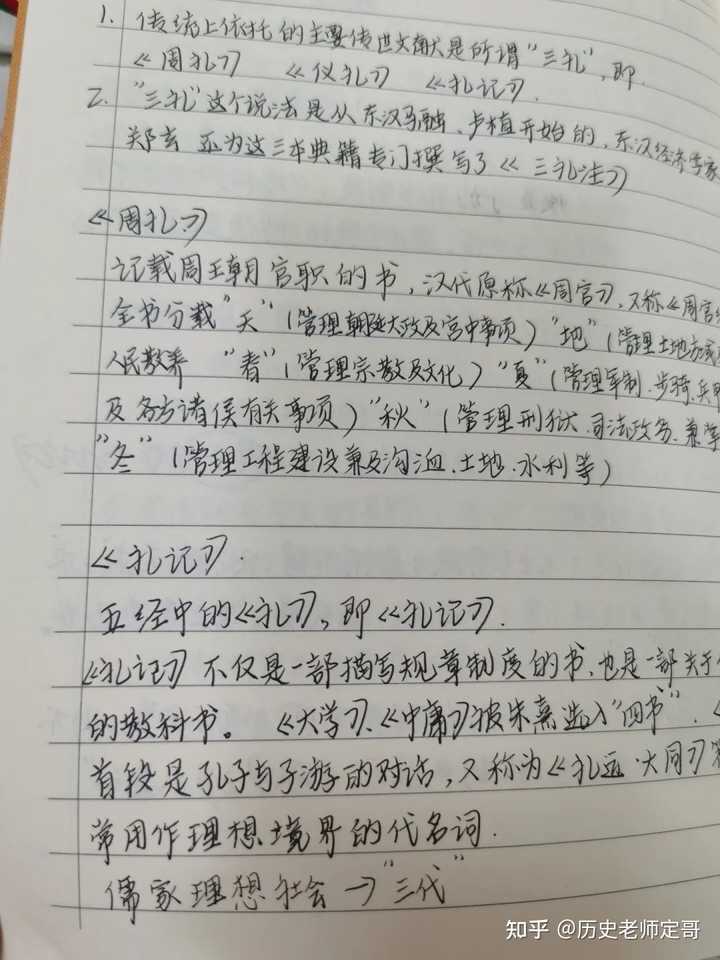 1. 传统上依托的主要传世文献是所谓"三礼",即
《周礼》 《仪礼》 《礼记》.
2. "三礼"这个说法是从东汉马融、卢植开始的,东汉经济学家
郑玄 还为这三本典籍专门撰写了《三礼注》
《周礼》
记载周王朝官职的书,汉代原称《周官》,又称《周官
全书分载"天"(管理朝廷大政及宫中事项)"地"(管理土地方域
人民教养 "春"(管理宗教及文化)"夏"(管理军制、步骑、兵甲
及各方诸侯有关事项)"秋"(管理刑狱、司法政务、兼掌
"冬"(管理工程建设兼及沟洫、土地、水利等)
《礼记》.
五经中的《礼》,即《礼记》.
《礼记》不仅是一部描写规章制度的书、也是一部关于
的教科书。 《大学》、《中庸》被朱熹选入"四书".《
首段是孔子与子游的对话,又称为《礼运·大同》
常用作理想境界的代名词.
儒家理想社会→"三代"
知乎 @历史老师定哥